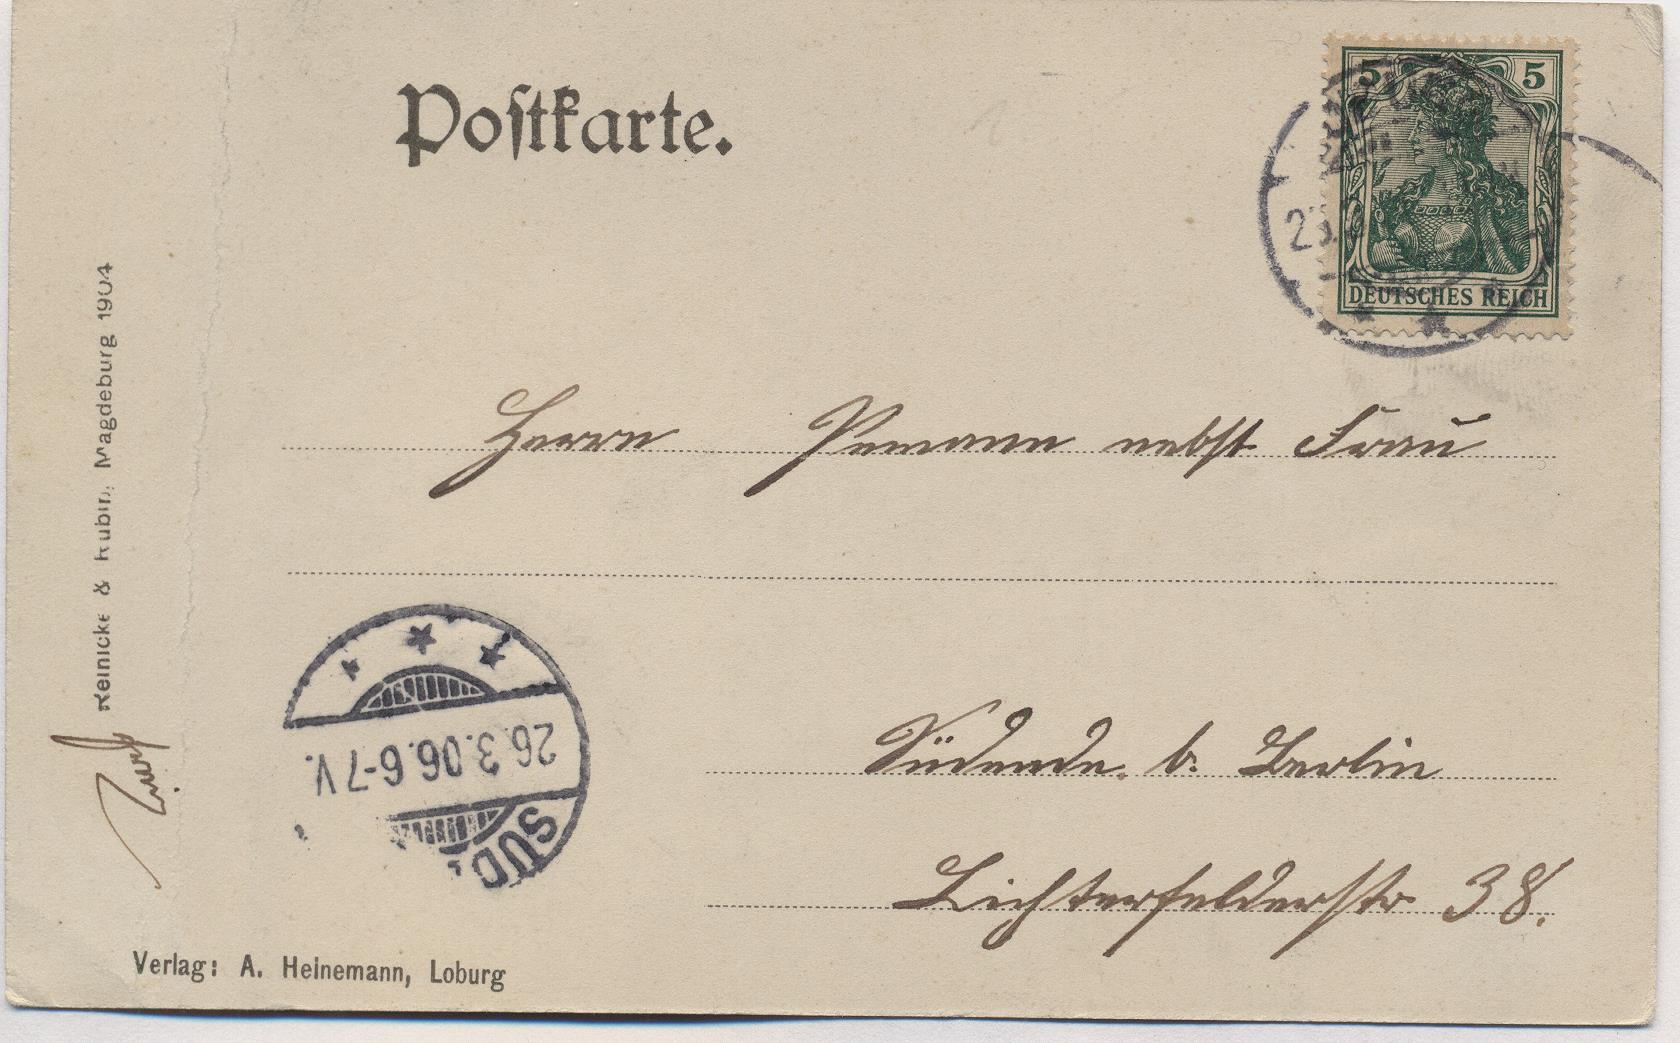 Postkarte.
5 5
DEUTSCHES REICH
Herrn Pemann nebst Frau
Südende. b. Berlin
Lichterfelderstr 38.
26.3.06.6-7V.
SÜD
Reinicke & Rubin, Magdeburg 1904
Verlag: A. Heinemann, Loburg